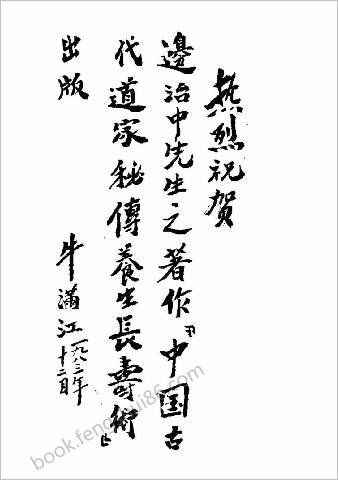 热烈祝贺
邊治中先生之著作『中国古
代道家秘傳養生長壽術』
出版
牛滿江 一九八三年
十二月
book.fengshui86.com